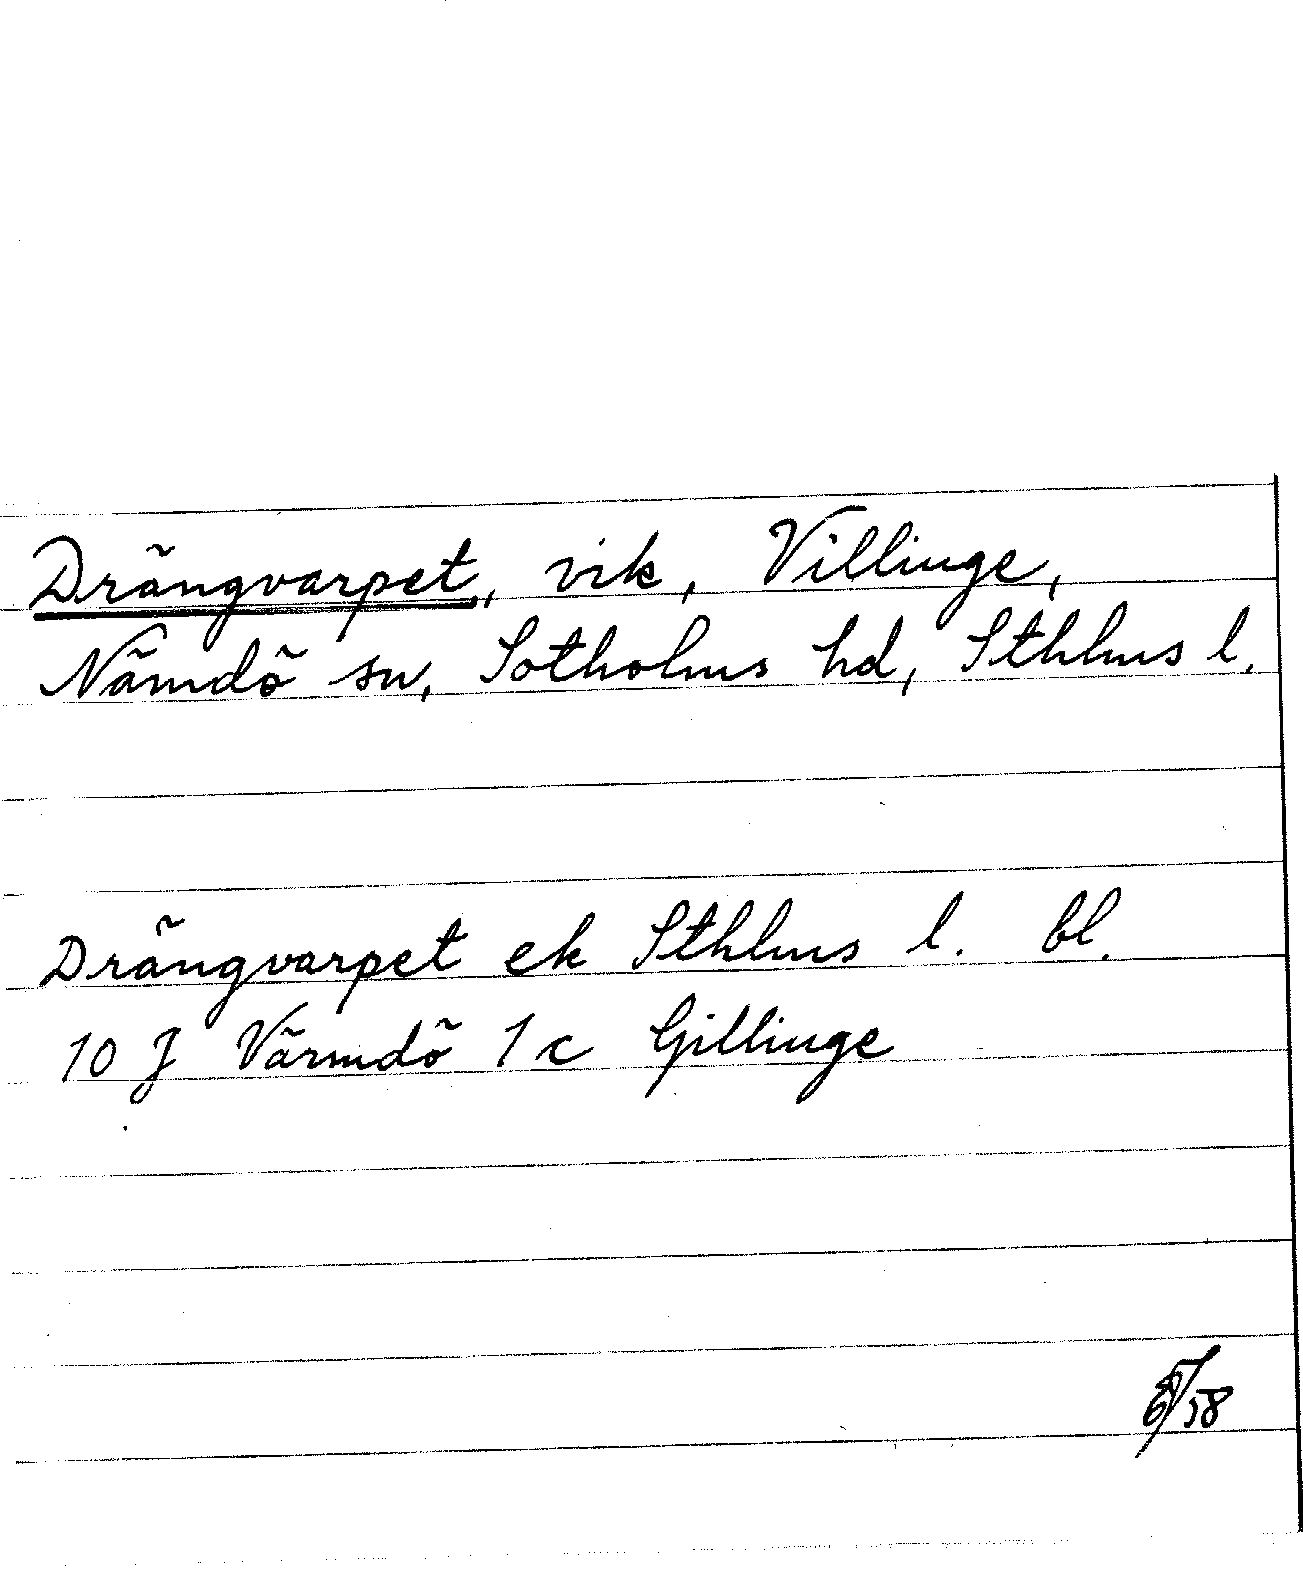 Drängvarpet, vik, Villinge,
Nämdö sn, Sotholms hd, Sthlms l.
Drängvarpet ek Sthlms l. bl.
10 J Värmdö 1c Gillinge
58